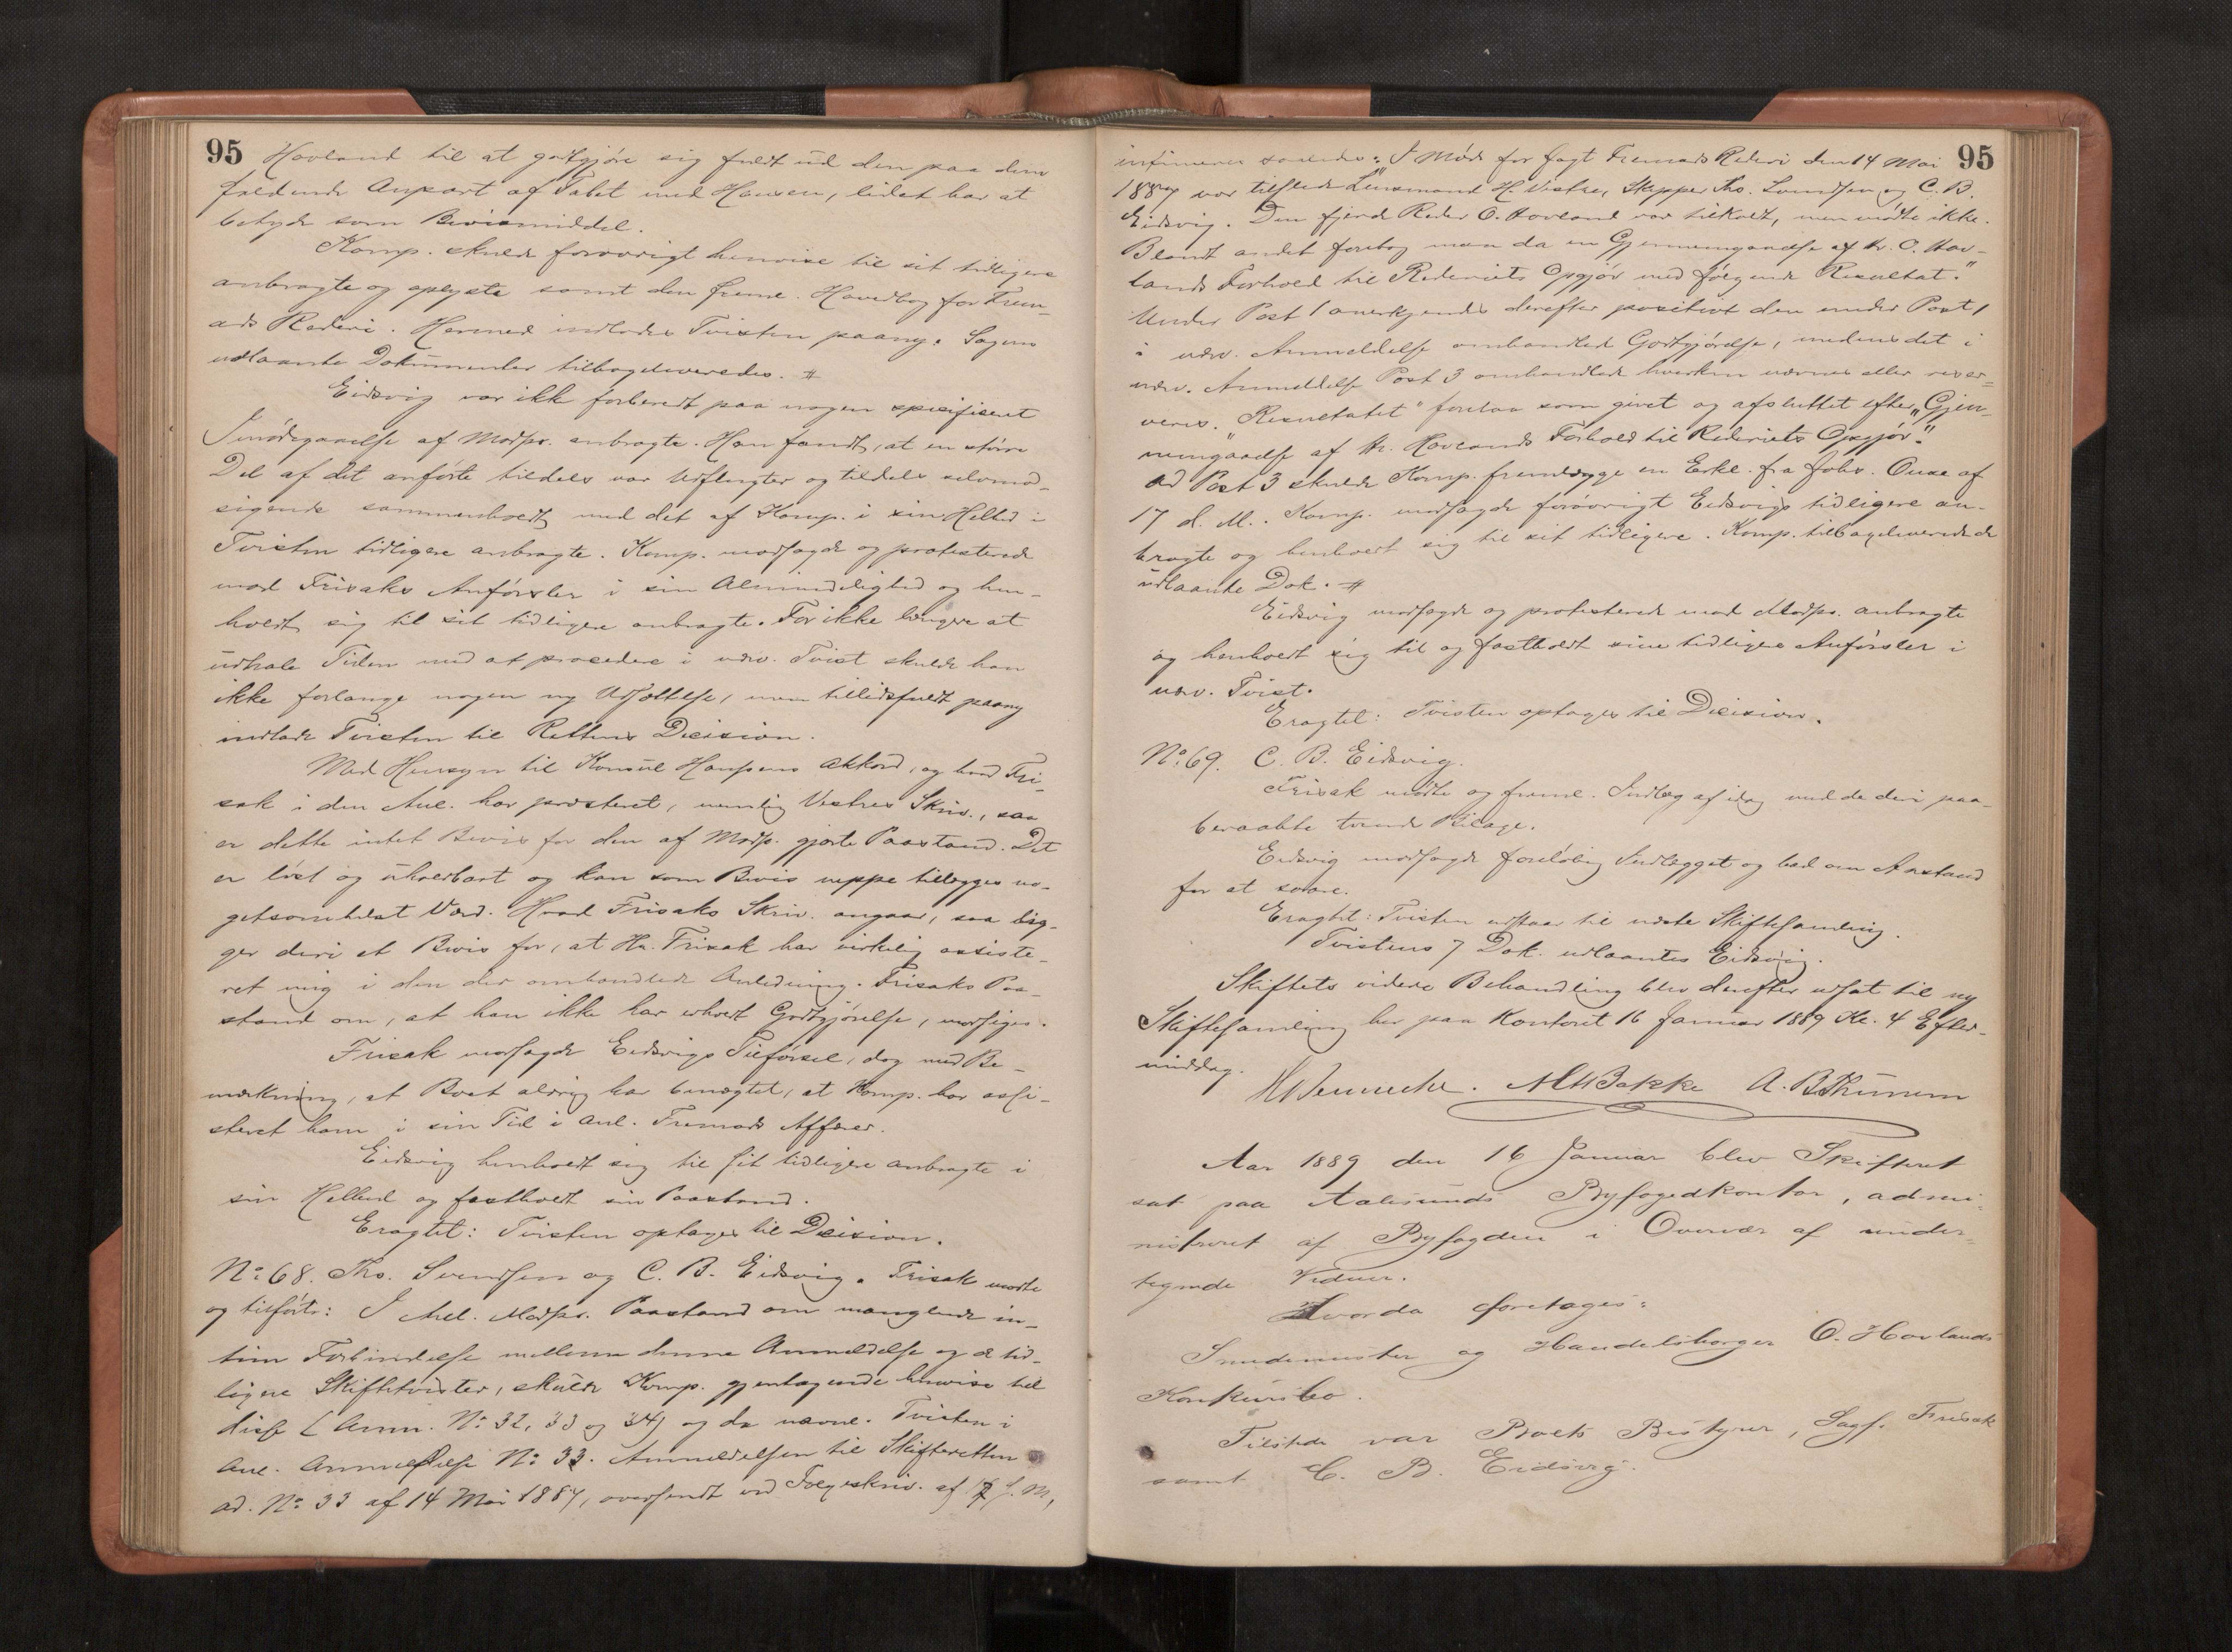 95 Hovland til at godtgjøre sig fuldt ud den paa dem
faldende Anpart af Tabet med Hansen, lidet har at
betyde som Bevismiddel.
Komp. skulde forøvrigt henvise til sit tidligere
anbragte og oplyste samt den freml. Hovedbog for Frem-
ads Rederi. Hermed indlodes Tvisten paany. Sagens
udlaante Dokumenter tilbageleveredes. #
Eidsvig var ikke forberedt paa nogen specificeret
Imødegaaelse af Modpr. anbragte. Han fandt, at en større
Del af det anførte tildels var Udflugter og tildels selvmod-
sigende sammenholdt med det af Komp. i sin Helhed i
Tvisten tidligere anbragte. Komp. modsagde og protesterede
mod Frisaks Anførsler i sin Almindelighed og hen-
holdt sig til sit tidligere anbragte. For ikke længere at
udhale Tiden med at procedere i nærv. Tvist skulde han
ikke forlange nogen ny Udsættelse, men tillidsfuldt paany
indlade Tvisten til Rettens Decision.
Med Hensyn til Konsul Hansens Akkord, og hvad Fri-
sak i den Anl. har præsteret, nemlig Vestres Skriv., saa
er dette intet Bevis for den af Modp. gjorte Paastand. Det
er løst og uholdbart og kan som Bevis neppe tillægges no-
getsomhelst Værd. Hvad Frisaks Skriv. angaar, saa lig-
ger deri et Bevis for, at Hr. Frisak har virkelig assiste-
ret mig i den der omhandlede Anledning. Frisaks Paa-
stand om, at han ikke har erholdt Godtgjørelse, modsiges.
Frisak modsagde Eidsvigs Tilførsel, dog med Be-
mærkning, at Boet aldrig har benægtet, at Komp. har assi-
steret ham i sin Tid i Anl. Fremads Affærer.
Eidsvig henholdt sig til sit tidligere anbragte i
sin Helhed og fastholdt sin Paastand.
Eragtet: Tvisten optages til Decision.
No. 68. Ths. Svendsen og C. B. Eidsvig. Frisak mødte
og tilførte: I Anl. Modpr. Paastand om manglende in-
tim Forbindelse mellem denne Anmeldelse og de tid-
ligere Skiftetvister, skulde Komp. gjentagende henvise til
disse (Anm. No. 32, 33 og 34) og da navnl. Tvisten i
Anl. Anmeldelse No. 33. Anmeldelsen til Skifteretten
ad. No. 33 af 14 Mai 1887, oversendt ved Følgeskriv. af 17 s. M,
95
infimeres saaledes: "I Møde for Jagt Fremads Rederi den 14 Mai
1887 var tilstede Lensmand H. Vestre, Skipper Ths. Svendsen og C. B.
Eidsvig. Den fjerde Reder O. Hovland var tilkaldt, men mødte ikke.
Blandt andet foretog man da en Gjennemgaaelse af Hr. O. Hov-
lands Forhold til Rederiets Opgjør med følgende Resultat."
Under Post 1 anerkjendes derefter positivt den under Post 1
i nærv. Anmeldelse omhandlede Godtgjørelse, medens det i
nærv. Anmeldelse Post 3 omhandlede hverken nævnes eller reser-
veres. "Resultatet" forelaa som givet og afsluttet efter "Gjen-
nemgaaelse af Hr. Hovlands Forhold til Rederiets Opgjør."
Ad Post 3 skulde Komp. fremlægge en Erkl. fra Johs. Ouse af
17 d. M.. Komp. modsagde forøvrigt Eidsvigs tidligere an-
bragte og henholdt sig til sit tidligere. Komp. tilbageleverede de
udlaante Dok. #
Eidsvig modsagde og protesterede mod Modpr. anbragte
og henholdt sig til og fastholdt sine tidligere Anførsler i
nærv. Tvist.
Eragtet: Tvisten optages til Decision.
No. 69. C. B. Eidsvig.
Frisak mødte og freml. Indlæg af idag med de deri paa-
beraabte tvende Bilage.
Eidsvig modsagde foreløbig Indlægget og bad om Anstand
for at svare.
Eragtet: Tvisten udstaar til næste Skiftesamling.
Tvistens 7 Dok. udlaantes Eidsvig.
Skiftets videre Behandling blev derefter udsat til ny
Skiftesamling her paa Kontoret 16 Januar 1889 Kl. 4 Efter-
middag.
A. M. Bakke
Aar 1889 den 16 Januar blev Skifteret
sat paa Aalesunds Byfogedkontor, admi-
nistreret af Byfogden i Overvær af under-
tegnede Vidner.
Hvorda foretages:
Smedemester og Handelsborger O. Hovlands
Konkursbo.
Tilstede var Boets Bestyrer, Sagf. Frisak
samt C. B. Eidsvig.